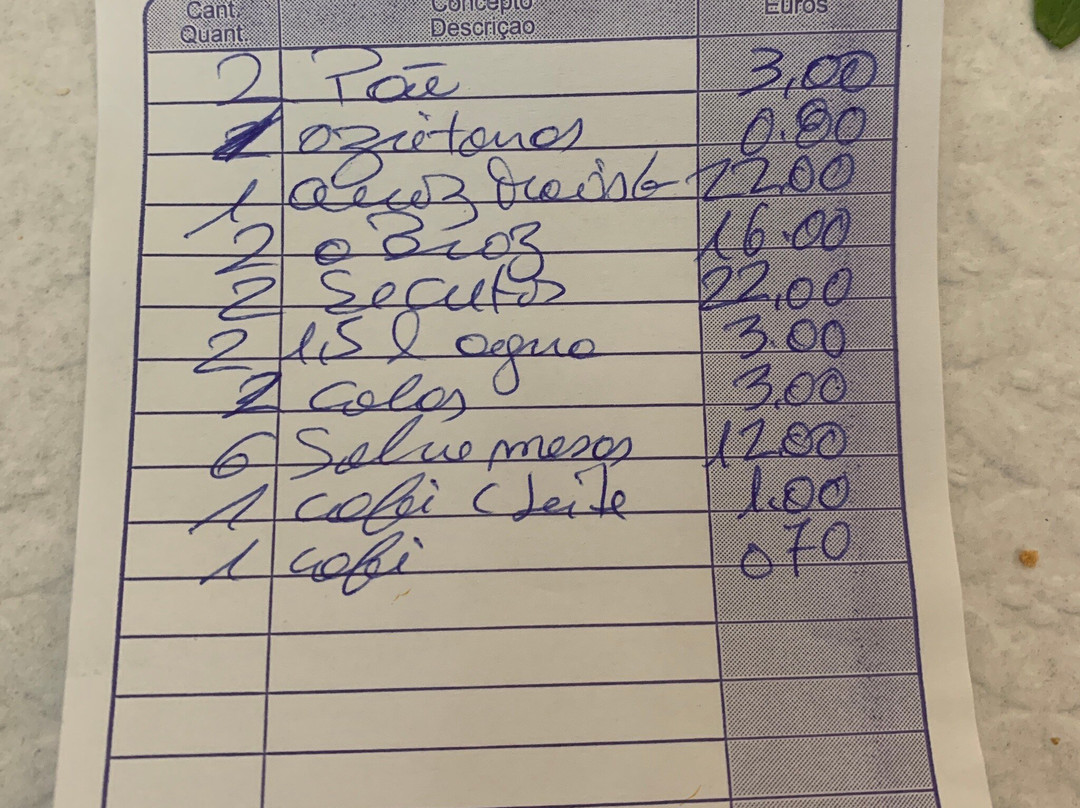 Cant. Concepto Euros
Quant. Descriçao
2 Pão 3,00
azeitonas 0.80
1 arroz 22.00
2 16.00
2 Secretos 22,00
2 1,5 l agua 3.00
2 Colas 3,00
6 Sobremesas 12.00
1 café c leite 1.00
1 café 0 70